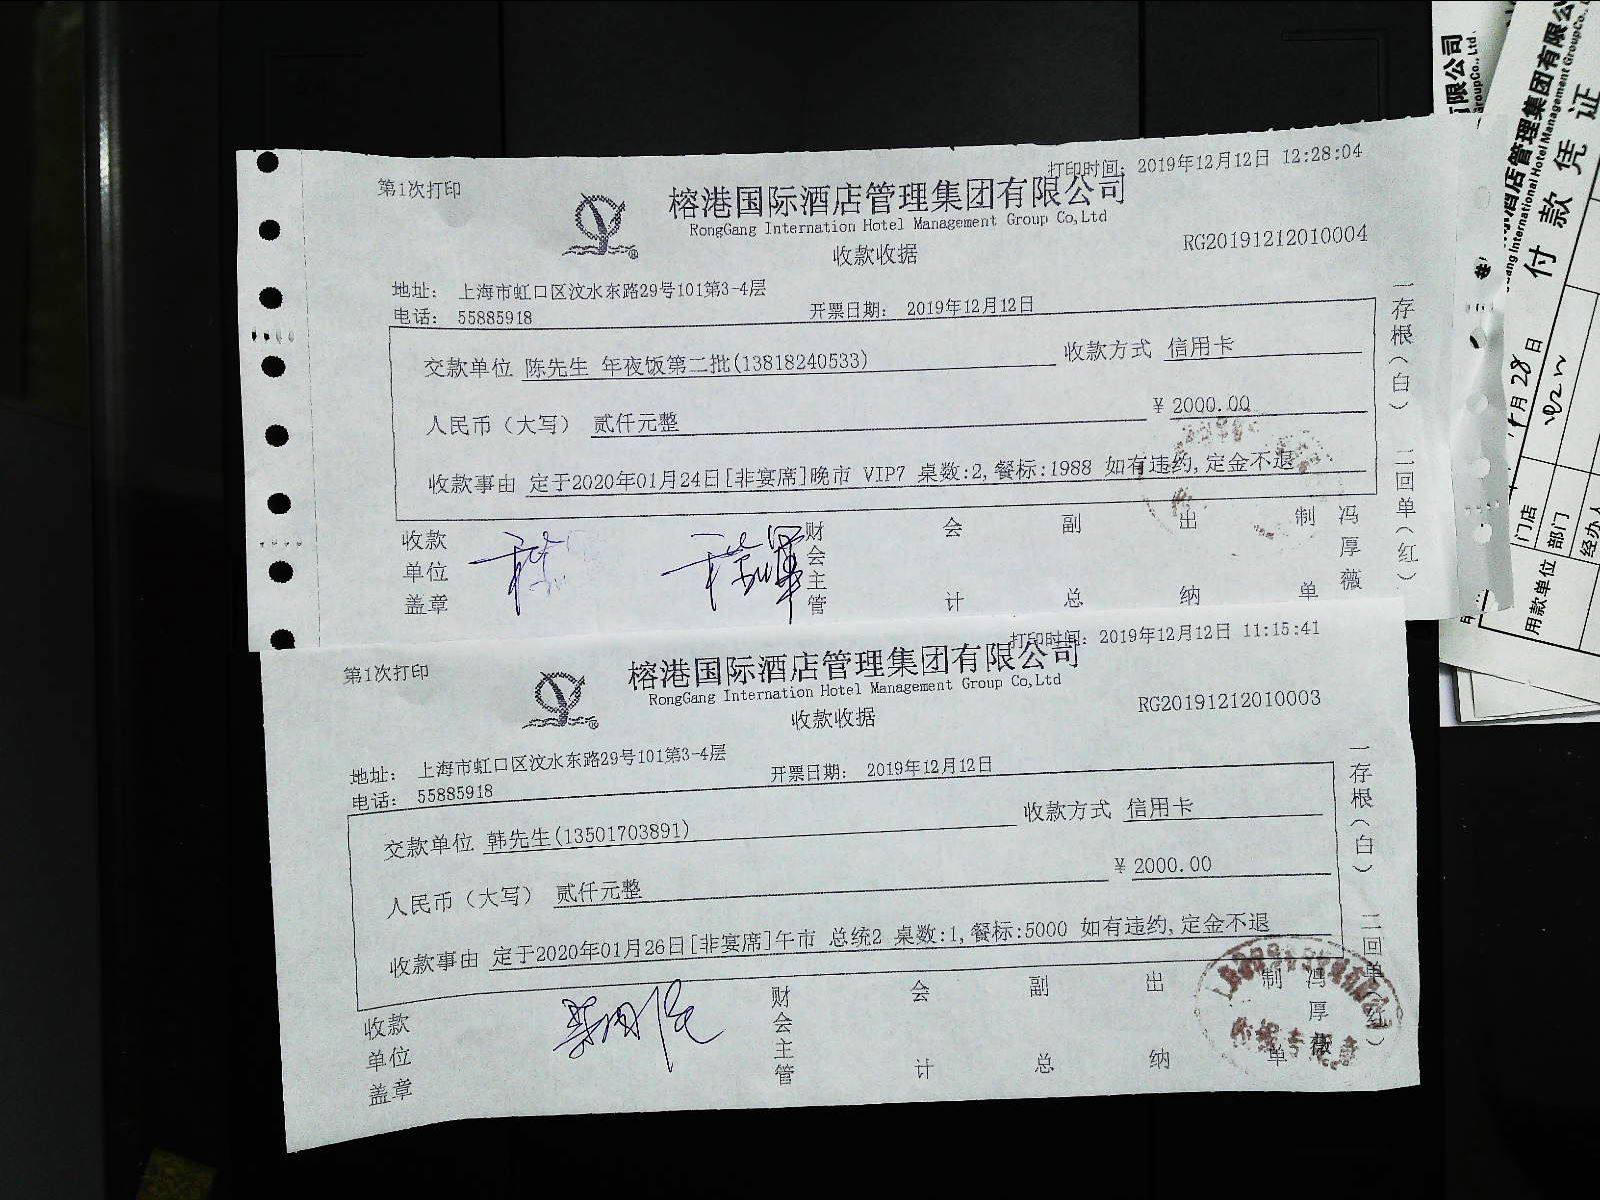 第1次打印
打印时间: 2019年12月12日 12:28:04
榕港国际酒店管理集团有限公司
RongGang Internation Hotel Management Group Co,Ltd
收款收据
RG20191212010004
地址: 上海市虹口区汶水东路29号101第3-4层
电话: 55885918
开票日期: 2019年12月12日
交款单位 陈先生 年夜饭第二批(13818240533)
收款方式 信用卡
人民币(大写) 贰仟元整
¥ 2000.00
收款事由 定于2020年01月24日[非宴席]晚市 VIP7 桌数:2,餐标:1988 如有违约,定金不退
收款单位盖章
财会主管
会计
副总
出纳
制单
冯厚薇
一存根(白)
二回单(红)
第1次打印
打印时间: 2019年12月12日 11:15:41
榕港国际酒店管理集团有限公司
RongGang Internation Hotel Management Group Co,Ltd
收款收据
RG20191212010003
地址: 上海市虹口区汶水东路29号101第3-4层
电话: 55885918
开票日期: 2019年12月12日
交款单位 韩先生(13501703891)
收款方式 信用卡
人民币(大写) 贰仟元整
¥ 2000.00
收款事由 定于2020年01月26日[非宴席]午市 总统2 桌数:1,餐标:5000 如有违约,定金不退
收款单位盖章
财会主管
会计
副总
出纳
制单
冯厚薇
一存根(白)
二回单(红)
有限公司
GroupCo.,Ltd.
酒店管理集团有限公
International Hotel Management GroupCo.,
付款凭证
月28日
门店
部门
用款单位
经办人